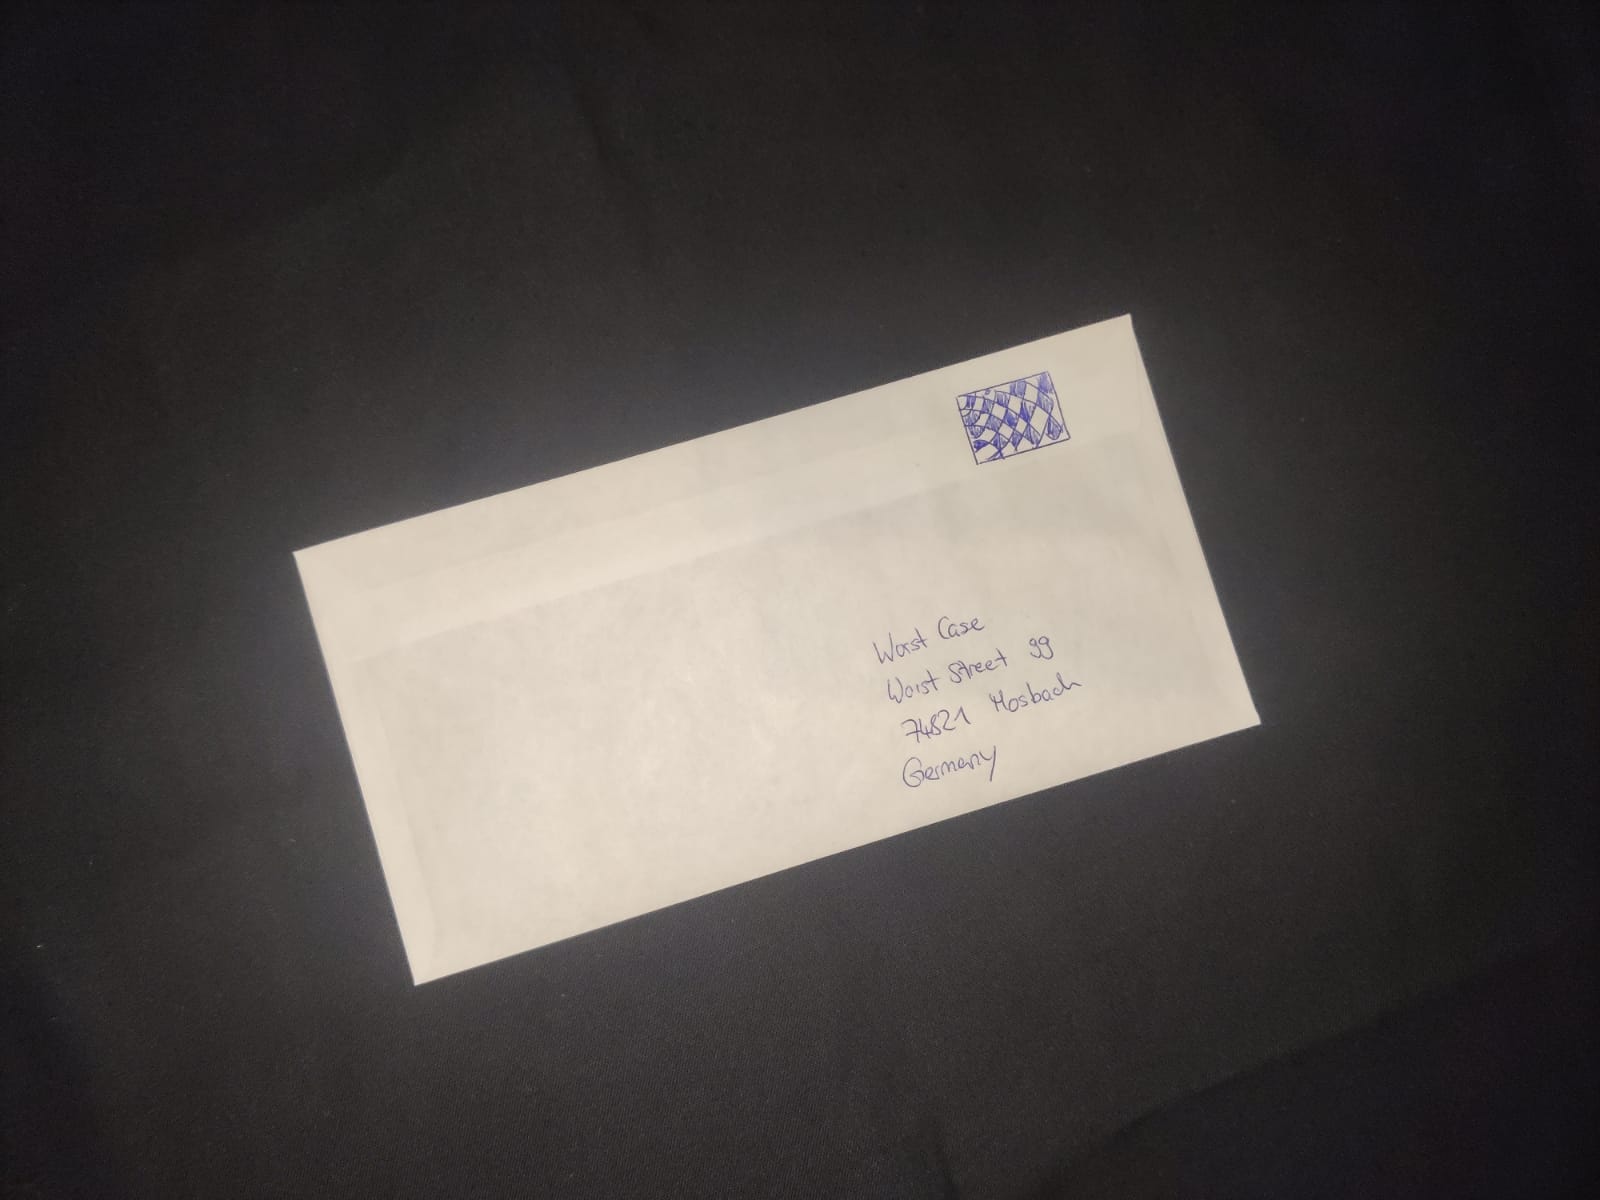 Worst Case
Worst Street 99
74821 Mosbach
Germany